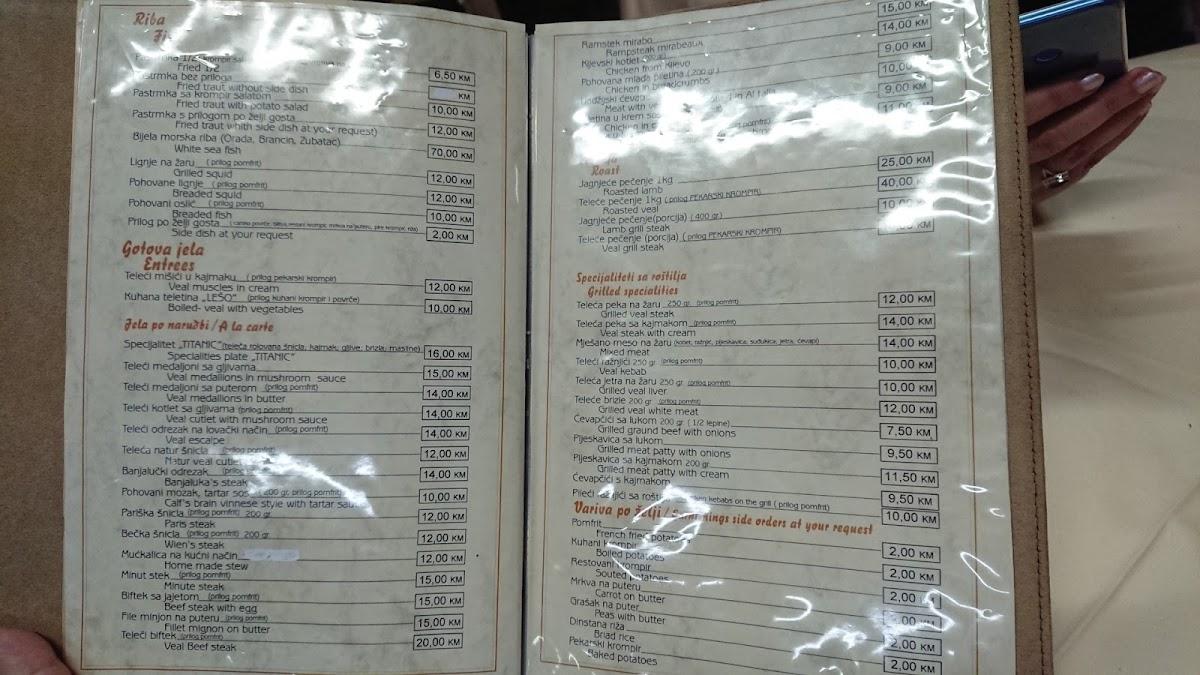 Riba
6,50 KM
Fried 1/2
Pastrmka bez priloga
Fried traut without side dish
KM
Pastrmka sa krompir salatom
Fried traut with potato salad
10,00 KM
Pastrmka s prilogom po želji gosta
Fried traut whith side dish at your request)
12,00 KM
Bijela morska riba (Orada, Brancin, Zubatac)
White sea fish
70,00 KM
Lignje na žaru ( prilog pomfrit)
Grilled squid
12,00 KM
Pohovane lignje ( prilog pomfrit)
Breaded squid
12,00 KM
Pohovani oslić ( prilog pomfrit)
Breaded fish
10,00 KM
Prilog po želji gosta
Side dish at your request
2,00 KM
Gotova jela
Entrees
Teleći mišići u kajmaku ( prilog pekarski krompir)
Veal muscles in cream
12,00 KM
Kuhana teletina „LEŠO" (prilog kuhani krompir i povrće)
Boiled- veal with vegetables
10,00 KM
Jela po narudbi / A la carte
Specijalitet „TITANIC"(teleća rolovana šnicla, kajmak, gljive, brizla, masline)
Specialities plate „TITANIC"
16,00 KM
Teleći medaljoni sa gljivama
Veal medallions in mushroom sauce
15,00 KM
Teleći medaljoni sa puterom (prilog pomfrit)
Veal medallions in butter
14,00 KM
Teleći kotlet sa gljivama (prilog pomfrit)
Veal cutlet with mushroom sauce
14,00 KM
Teleći odrezak na lovački način (prilog pomfrit)
Veal escalpe
14,00 KM
Teleća natur šnicla (prilog pomfrit)
Natur veal cutlet
12,00 KM
Banjalučki odrezak
Banjaluka's steak
14,00 KM
Pohovani mozak, tartar sos ( 200 gr, prilog pomfrit)
Calf's brain vinnese style with tartar
10,00 KM
Pariška šnicla (prilog pomfrit) 200 gr.
Paris steak
12,00 KM
Bečka šnicla (prilog pomfrit) 200 gr.
Wien's steak
12,00 KM
Mućkalica na kućni način
Home made stew
12,00 KM
Minut stek (prilog pomfrit)
Minute steak
15,00 KM
Biftek sa jajetom (prilog pomfrit)
Beef steak with egg
15,00 KM
File minjon na puteru (prilog pomfrit)
Fillet mignon on butter
15,00 KM
Teleći biftek (prilog pomfrit)
Veal Beef steak
20,00 KM
15,00 KM
Ramstek mirabo
Rampsteak mirabeaux
14,00 KM
Kijevski kotlet
Chicken from Kijevo
9,00 KM
Pohovana mlada piletina ( 200 gr.)
Chicken in breadcrumbs
10,00 KM
Meat with
9,00 KM
u krem
Chicken in
11,00
Roast
Jagnjeće pečenje 1kg
Roasted lamb
25,00 KM
Teleće pečenje 1kg ( prilog PEKARSKI KROMPIR)
Roasted veal
40,00 KM
Jagnjeće pečenje(porcija) ( 400 gr.)
Lamb grill steak
Teleće pečenje (porcija) ( prilog PEKARSKI KROMPIR)
Veal grill steak
Specijaliteti sa roštilja
Grilled specialities
Teleća peka na žaru 250 gr. (prilog pomfrit)
Grilled veal steak
12,00 KM
Teleća peka sa kajmakom (prilog pomfrit)
Veal steak with cream
14,00 KM
Mješano meso na žaru (kotlet, ražnjić, pljeskavica, sudžukica, jetra, ćevapi)
Mixed meat
14,00 KM
Teleći ražnjići 250 gr. (prilog pomfrit)
Veal kebab
10,00 KM
Teleća jetra na žaru 250 gr. (prilog pomfrit)
Grilled veal liver
10,00 KM
Teleće brizle 200 gr. (prilog pomfrit)
Grilled veal white meat
12,00 KM
Ćevapčići sa lukom 200 gr. ( 1/2 lepine)
Grilled graund beef with onions
7,50 KM
Pljeskavica sa lukom
Grilled meat patty with onions
9,50 KM
Pljeskavica sa kajmakom 200 gr.
Grilled meat patty with cream
11,50 KM
Ćevapčići s kajmakom
9,50 KM
Pileći ražnjići sa kebabs on the grill ( prilog pomfrit)
10,00 KM
Variva po želji / side orders at your request
Pomfrit
French fried
2,00 KM
Kuhani krompir
Boiled potatoes
2,00 KM
Restovani krompir
Souted potatoes
2,00 KM
Mrkva na puteru
Carrot on butter
2,00 KM
Grašak na puter
Peas with butter
2,00 KM
Dinstana riža
Briad rice
2,00 KM
Pekarski krompir
Baked potatoes
2,00 KM